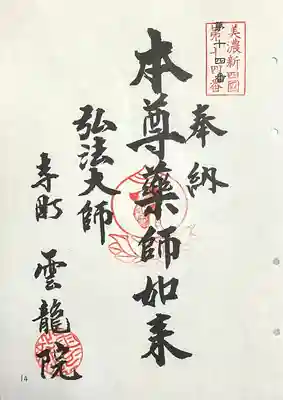 美濃新四國
第十四番
奉納
本尊藥師如来
弘法大師
雲龍院
14